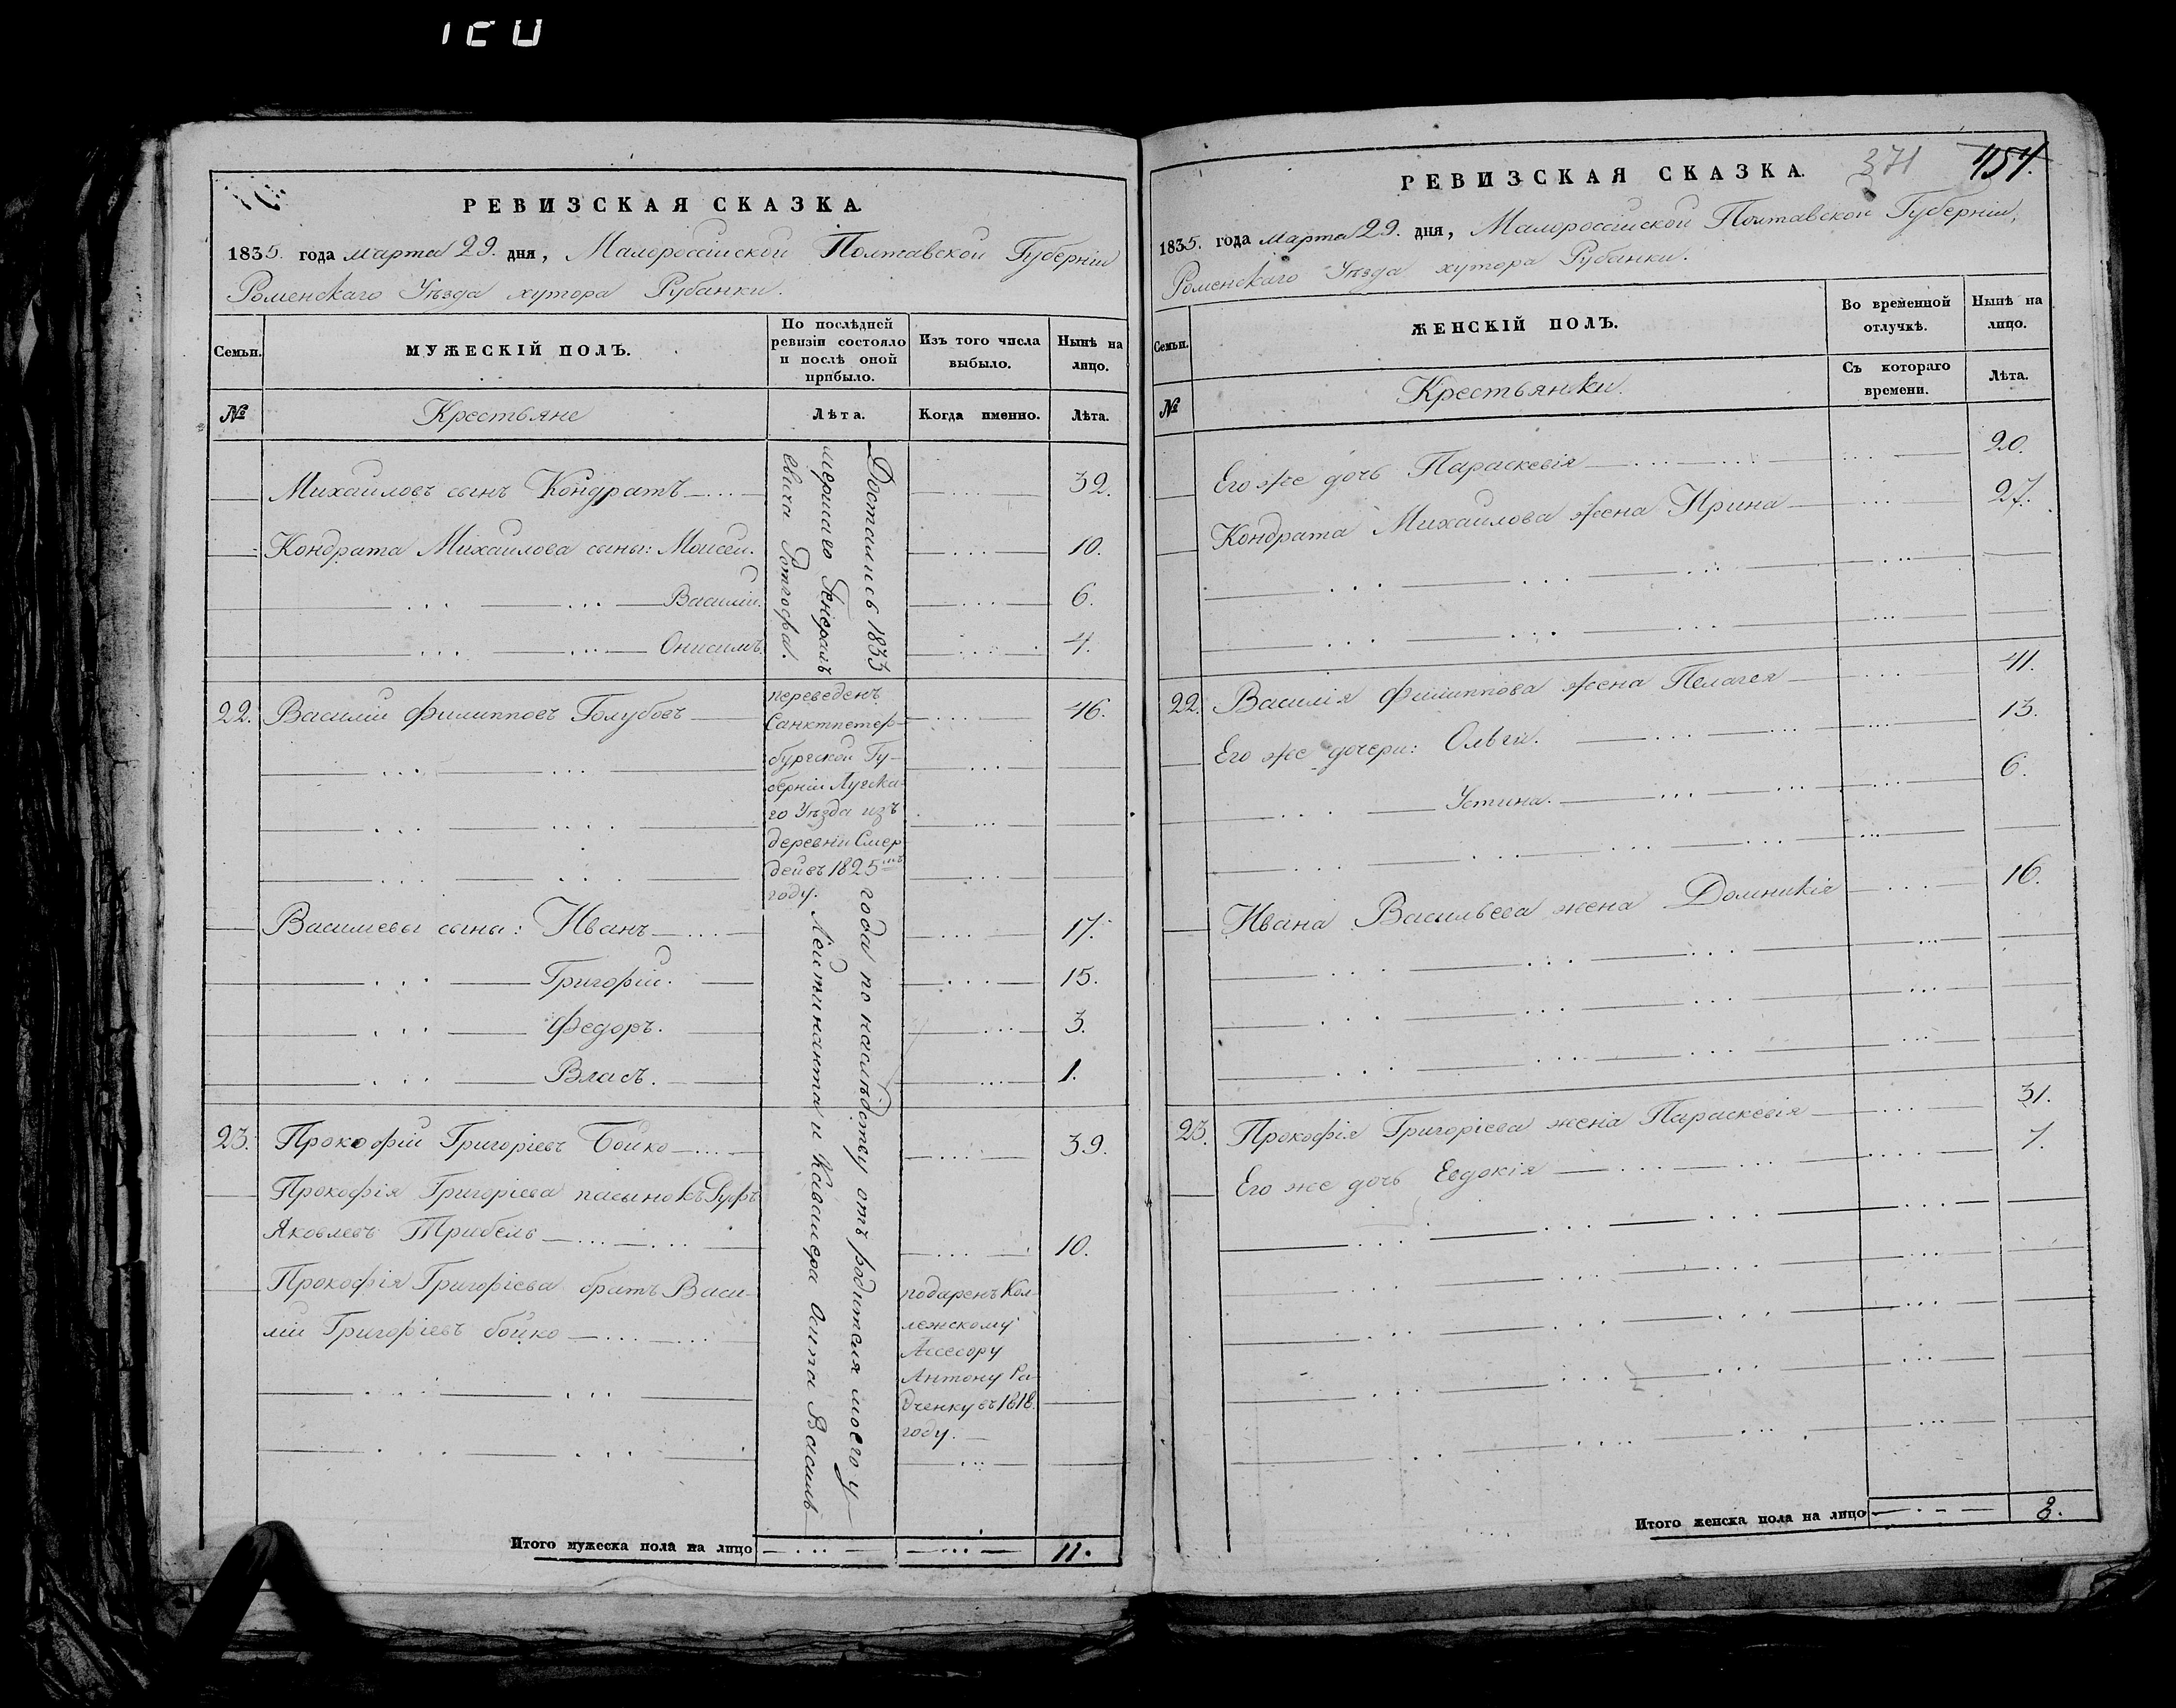 РЕВИЗСКАЯ СКАЗКА
1835. года марта 29. дня, Малороссійской Полтавской Губерніи
Роменскаго Уѣзда хутора Рубанки.
Семьи.
МУЖЕСКІЙ ПОЛЪ.
По послѣдней
ревизіи состояло
и послѣ оной
прибыло.
Изъ того числа
выбыло.
Нынѣ на
лицо.
№
Крестьяне
Лѣта.
Когда именно.
Лѣта.
Михайловъ сынъ Кондратъ 32.
Кондрата Михайлова сыны: Моисей. 10.
Василій. 6.
Онисимъ. 4.
22. Василій Филипповъ Голубовъ 46.
переведенъ
Санктпетер-
бургской Гу-
берніи Лугска-
го Уѣзда изъ
деревни Смер-
дей въ 1825мъ
году.
Василіевы сыны: Иванъ 17.
Григорій. 15.
Федоръ. 3.
Власъ. 1.
23. Прокофій Григоріевъ Бойко 39.
Прокофія Григоріева пасынокъ Руфъ
Яковлевъ Трибель 10.
Прокофія Григоріева братъ Васи-
лій Григоріевъ бойко
подаренъ Кол-
лежскому
Ассесору
Антону Ра-
дченку въ 1818.
году.
Достались 1833 года по наслѣдству отъ родителя моего у-
мершаго Генералъ Лейтинанта и Кавалера Осипа Василь-
евича Ротгофа.
Итого мужеска пола на лицо 11.
РЕВИЗСКАЯ СКАЗКА. 371 454.
1835. года марта 29. дня, Малороссійской Полтавской Губерніи,
Роменскаго Уѣзда хутора Рубанки.
Семьи.
ЖЕНСКІЙ ПОЛЪ.
Во временной
отлучкѣ.
Нынѣ на
лицо.
№
Крестьянки.
Съ котораго
времени.
Лѣта.
Его же дочь Параскевія 20.
Кондрата Михайлова жена Ирина 27.
22. Василія Филиппова жена Пелагея 41.
Его же дочери: Ольги. 13.
Устина. 6.
Ивана Васильева жена Домникія 16.
23. Прокофія Григоріева жена Параскевія 31.
Его же дочь Евдокія 7.
Итого женска пола на лицо 8.